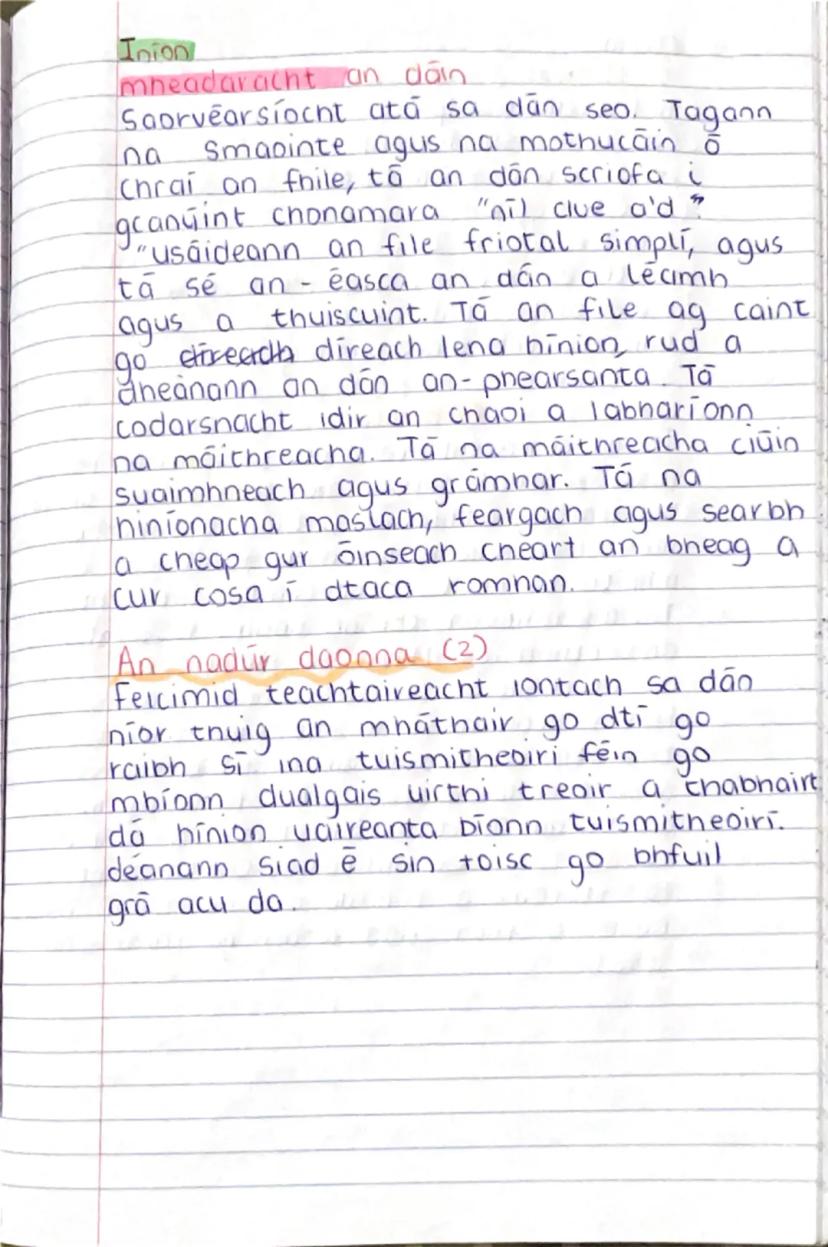 Iníon
mheadaracht an dáin
Saorvéarsíocht atá sa dán seo. Tagann
na smaointe agus na mothucáin ó
chraí an fhile, tá an dán scríofa i
gcanúint chonamara "níl clue a'd"
"úsáideann an file friotal simplí, agus
tá sé an-éasca an dán a léamh
agus a thuiscuint. Tá an file ag caint
go díreach lena hiníon, rud a
dheánann an dán an-phearsanta. Tá
codarsnacht idir an chaoi a labharíonn
na máithreacha. Tá na máithreacha ciúin
suaimhneach agus grámhar. Tá na
hiníonacha maslach, feargach agus searbh
a cheap gur óinseach cheart an bheag a
cur cosa í dtaca romhan.
An nadúr daonna (2)
Feicimid teachtaireacht iontach sa dán
níor thuig an mháthair go dtí go
raibh sí ina tuismitheoiri féin go
mbíonn dualgais uirthi treoir a thabhairt
dá híníon uaireanta bíonn tuismitheoirí.
déanann siad é sin toisc go bhfuil
grá acu da.